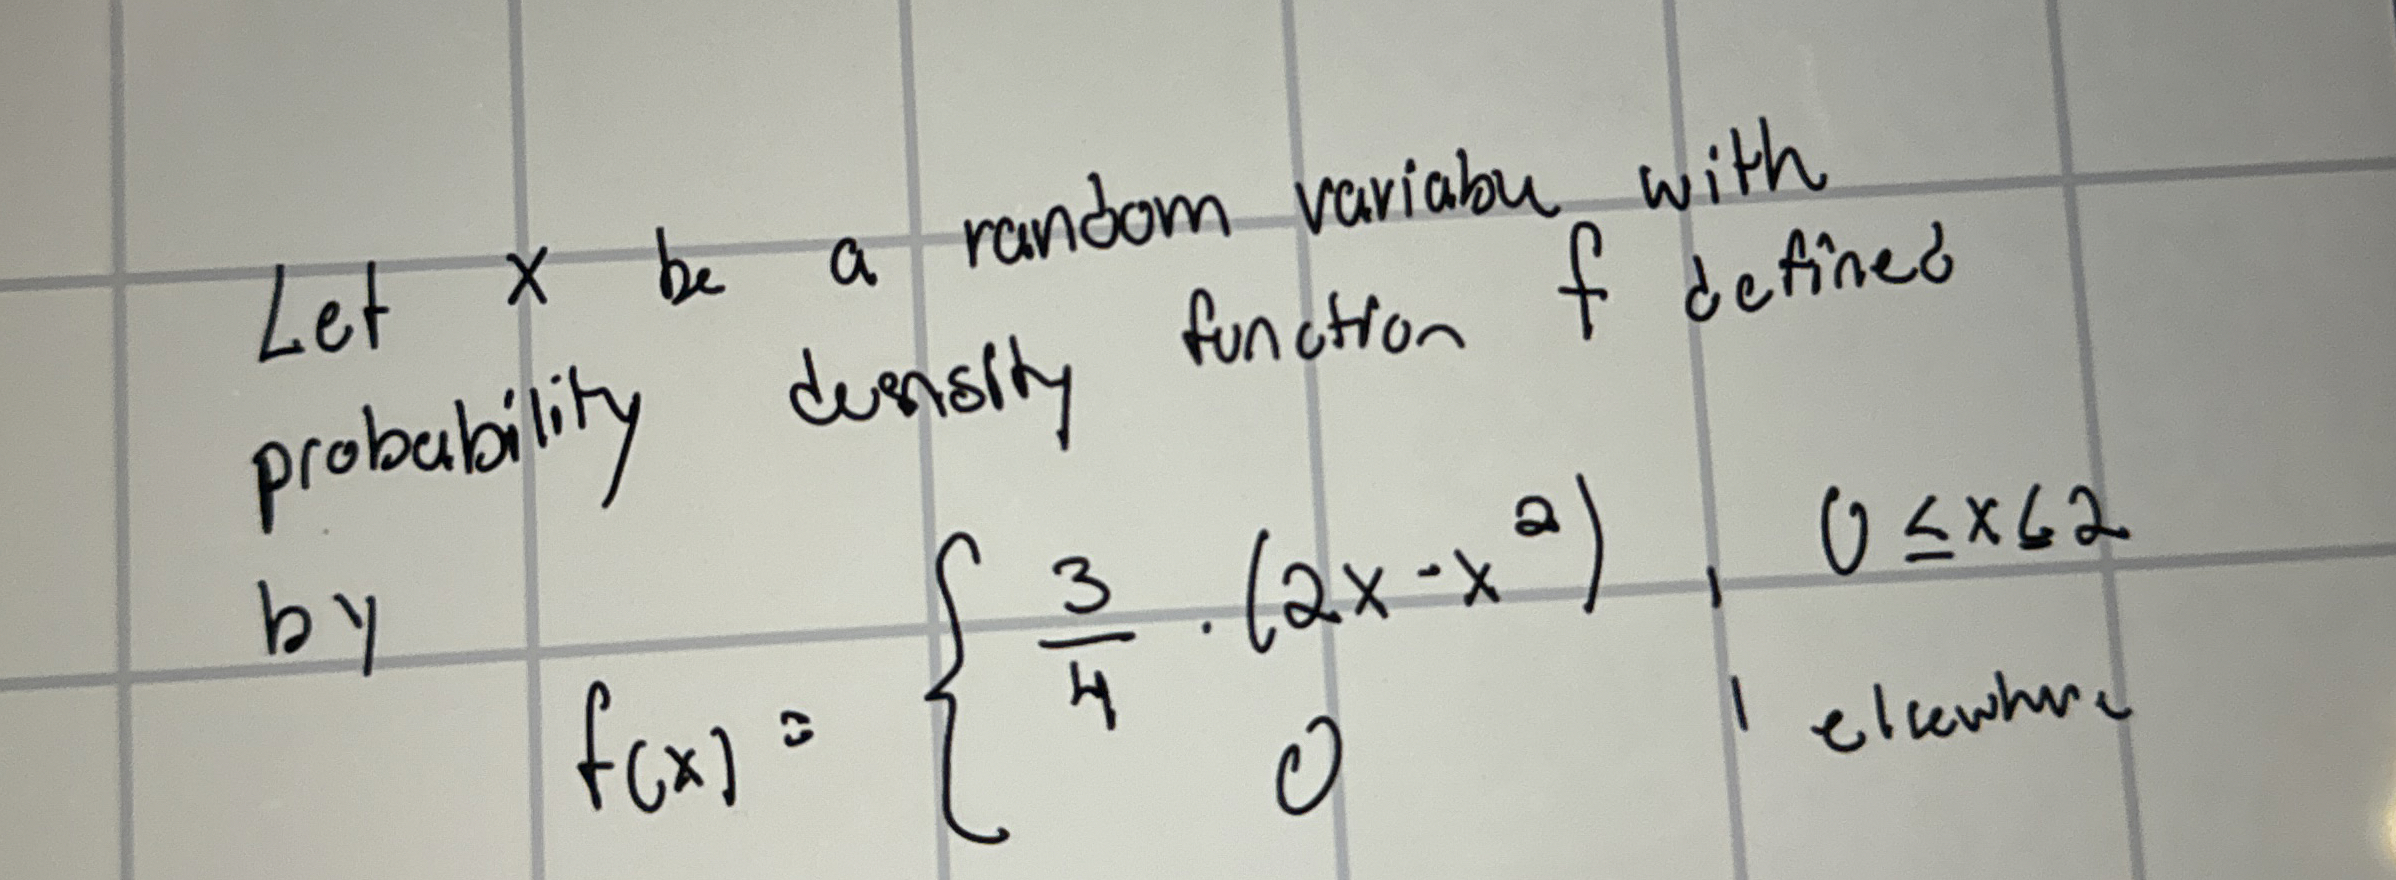 Let x be a random variable with
probability density function f defined
by
f(x) = { 3/4 · (2x - x²) , 0 ≤ x ≤ 2
0 , elsewhere